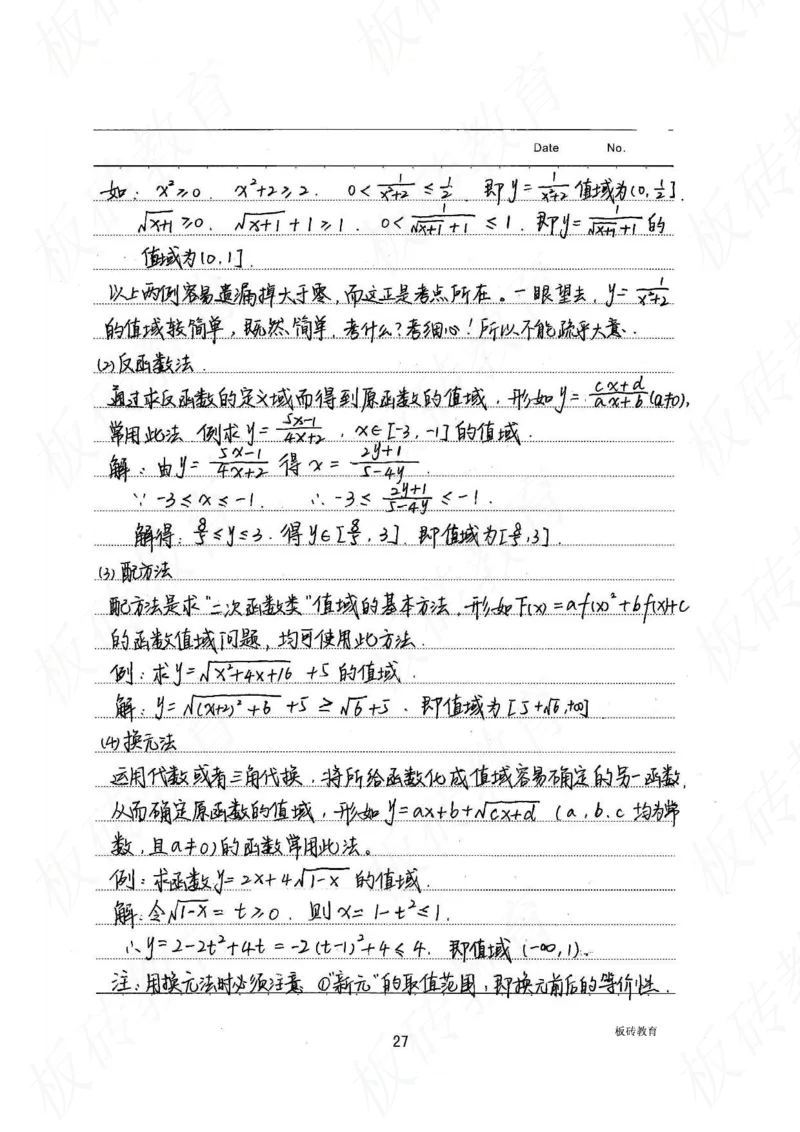 Date No.
如: x²≥0. x²+2≥2. 0<1/(x²+2)≤1/2. 即y=1/(x²+2)值域为(0,1/2].
√(x+1)≥0. √(x+1)+1≥1. 0<1/(√(x+1)+1)≤1. 即y=1/(√(x+1)+1)的
值域为(0,1].
以上两例容易遗漏掉大于零,而这正是考点所在。一眼望去,y=1/(x²+2)
的值域较简单,既然简单,考什么?考细心!所以不能疏乎大意.
(2)反函数法.
通过求反函数的定义域而得到原函数的值域,形如y=(cx+d)/(ax+b)(a≠0),
常用此法 例求y=(5x-1)/(4x+2),x∈[-3,-1]的值域.
解:由y=(5x-1)/(4x+2)得x=(2y+1)/(5-4y).
∵-3≤x≤-1. ∴-3≤(2y+1)/(5-4y)≤-1.
解得:8/5≤y≤3.得y∈[8/5,3].即值域为[8/5,3].
(3)配方法
配方法是求"二次函数类"值域的基本方法.形如F(x)=af(x)²+bf(x)+c
的函数值域问题,均可使用此方法.
例:求y=√(x²+4x+16)+5的值域.
解:y=√((x+2)²+6)+5≥√6+5.即值域为[5+√6,+∞]
(4)换元法
运用代数或者三角代换,将所给函数化成值域容易确定的另一函数,
从而确定原函数的值域,形如y=ax+b+√(cx+d)(a,b.c均为常
数,且a≠0)的函数常用此法。
例:求函数y=2x+4√(1-x)的值域.
解:令√(1-x)=t≥0.则x=1-t²≤1.
∴y=2-2t²+4t=-2(t-1)²+4≤4.即值域(-∞,1).
注:用换元法时必须注意①"新元"的取值范围,即换元前后的等价性.
板砖教育
27